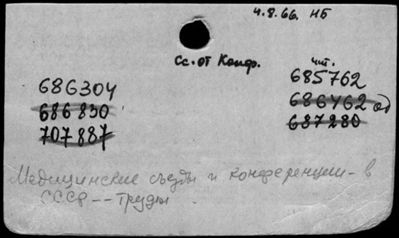 4.8.66. НБ
Сс. от Конф.
чит.
686304
685762
686830
686462 од
707887
687280
Медицинские съезды и конференции - в
СССР -- Труды